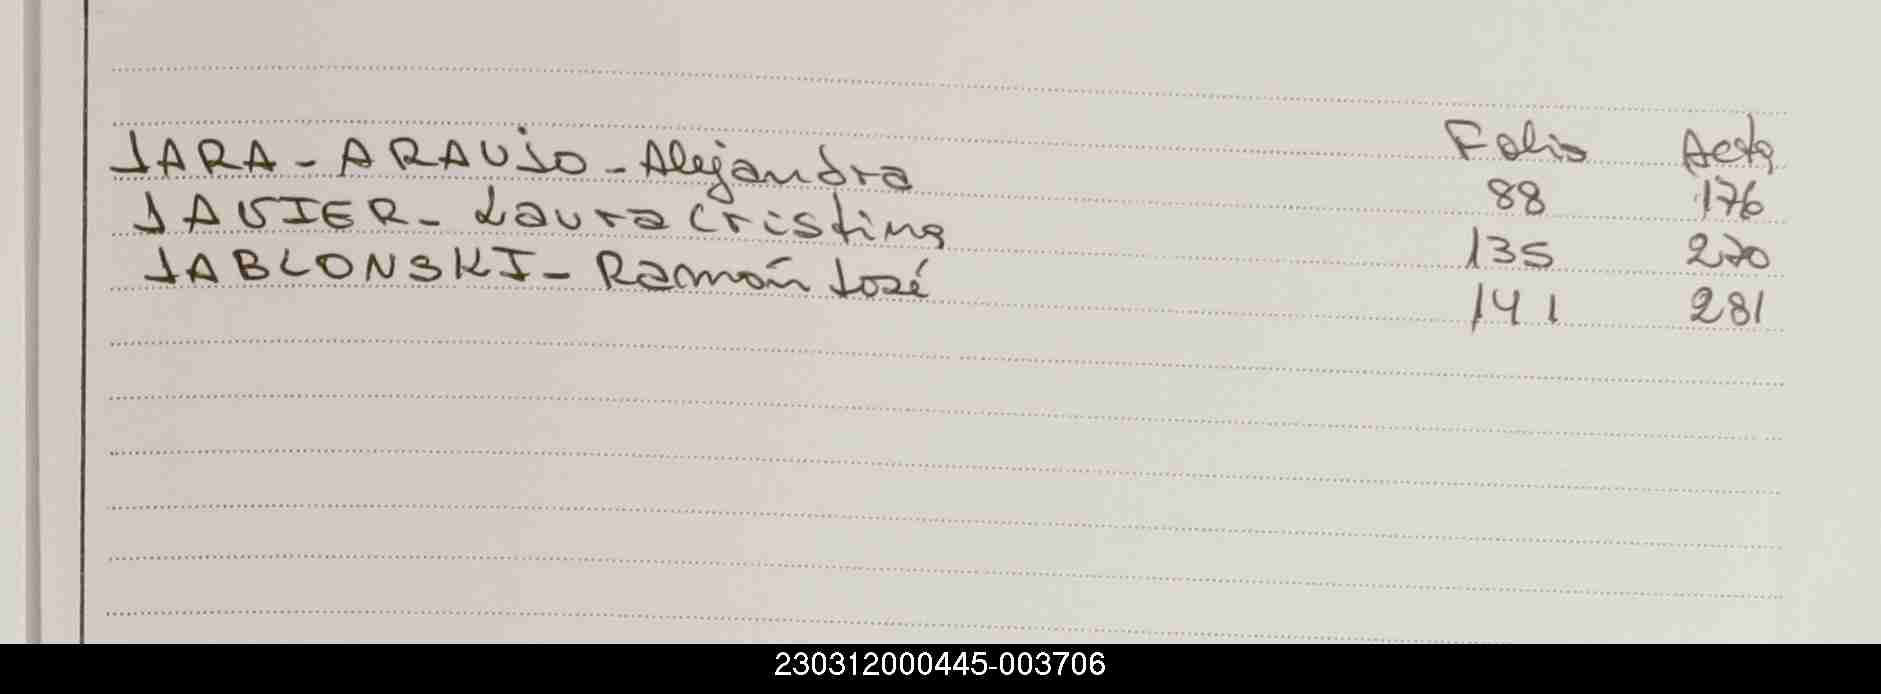 Folio Acta
JARA - ARAUJO - Alejandra 88 176
JAVIER - Laura Cristina 135 270
JABLONSKI - Ramón José 141 281
230312000445-003706